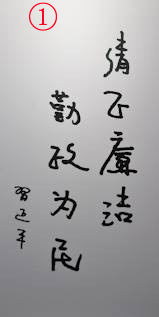 ①
清正廉洁
勤政为民
習近平